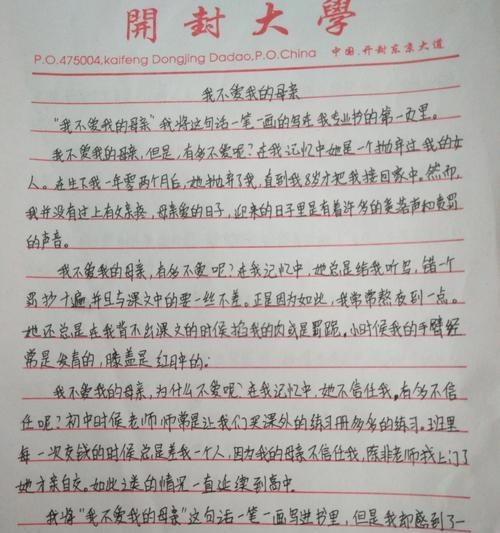 開封大學
P.O.475004,kaifeng Dongjing Dadao,P.O.China 中国.开封东京大道
我不爱我的母亲
"我不爱我的母亲"我将这句话一笔一画的写在我专业书的第一页里。
我不爱我的母亲，但是，有多不爱呢？在我记忆中她是一个抛弃过我的女
人。在生下我一年零两个月后，她抛弃了我，直到我8岁才把我接回家中。然而，
我并没有过上有父亲疼，母亲爱的日子，迎来的日子里是有着许多的奚落声和责骂
的声音。
我不爱我的母亲，有多不爱呢？在我记忆中，她总是给我听写，错一个
罚抄十遍，并且与课文中的要一丝不差。正是因为如此，我常常熬夜到一点。
她还总是在我背不出课文的时候掐我的肉或是罚跪。小时候我的手臂经
常是发青的，膝盖是红肿的；
我不爱我的母亲，为什么不爱呢？在我记忆中，她不信任我，有多不信
任呢？初中时候老师师常是让我们买课外的练习册多多的练习。班里
每一次交钱的时候总是差我一个人，因为我的母亲不信任我，除非老师找上门了
她才亲自交。如此之类的情况一直延续到高中。
我将"我不爱我的母亲"这句话一笔一画写进书里，但是我却感到了一